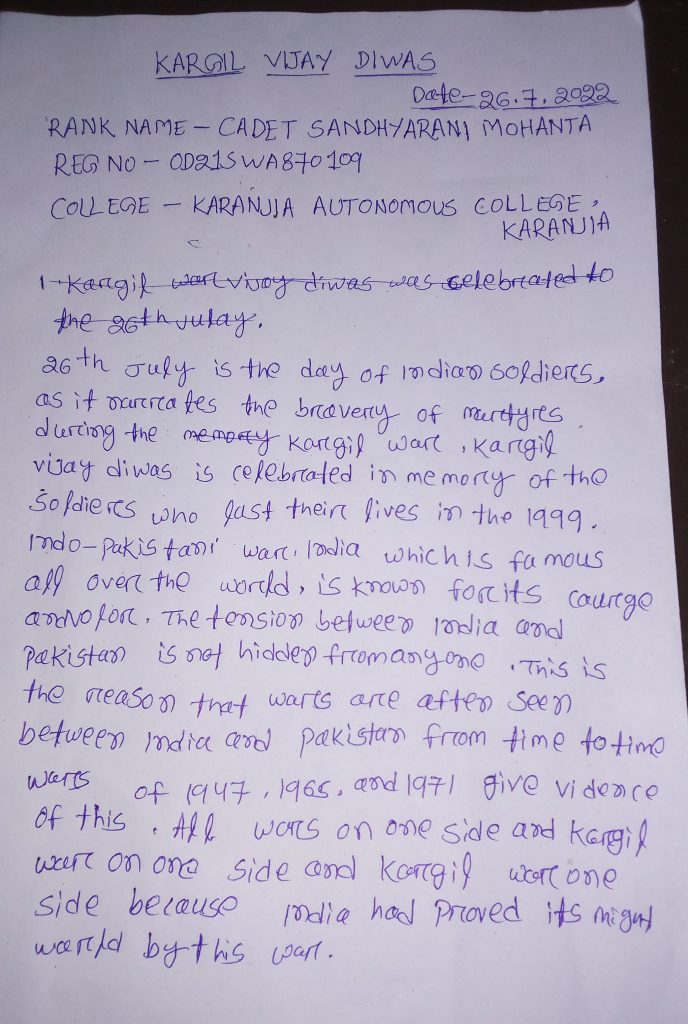 KARGIL VIJAY DIWAS
Date-26.7.2022
RANK NAME - CADET SANDHYARANI MOHANTA
REG NO - OD21SWA870109
COLLEGE - KARANJIA AUTONOMOUS COLLEGE,
KARANJIA
1 Kargil war vijay diwas was celebrated to
the 26th julay.
26th July is the day of Indian soldiers,
as it narrates the bravery of martyres
during the memory Kargil war, Kargil
vijay diwas is celebrated in memory of the
Soldiers who last their lives in the 1999.
Indo-Pakistani war. India which is famous
all over the world, is known for its caurge
and volor. The tension between India and
Pakistan is not hidden from anyone. This is
the reason that wars are often seen
between India and Pakistan from time to time
wars of 1947, 1965, and 1971 give vidence
of this. All wars on one side and Kargil
war on one side and Kargil war one
side because India had Proved its might
warld by this war.